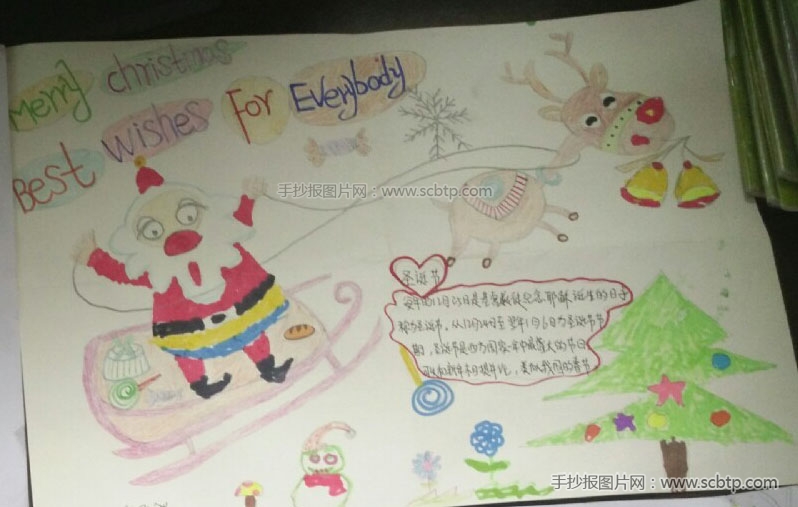 Merry christmas
Best wishes For Everybody
手抄报图片网：www.scbtp.com
圣诞节
每年的12月25日是基督徒纪念耶稣诞生的日子
称为圣诞节。从12月24日至翌年1月6日为圣诞节节
期，圣诞节是西方国家一年中最盛大的节日
可以和新年相提并论，类似我国的春节
手抄报图片网：www.scbtp.com